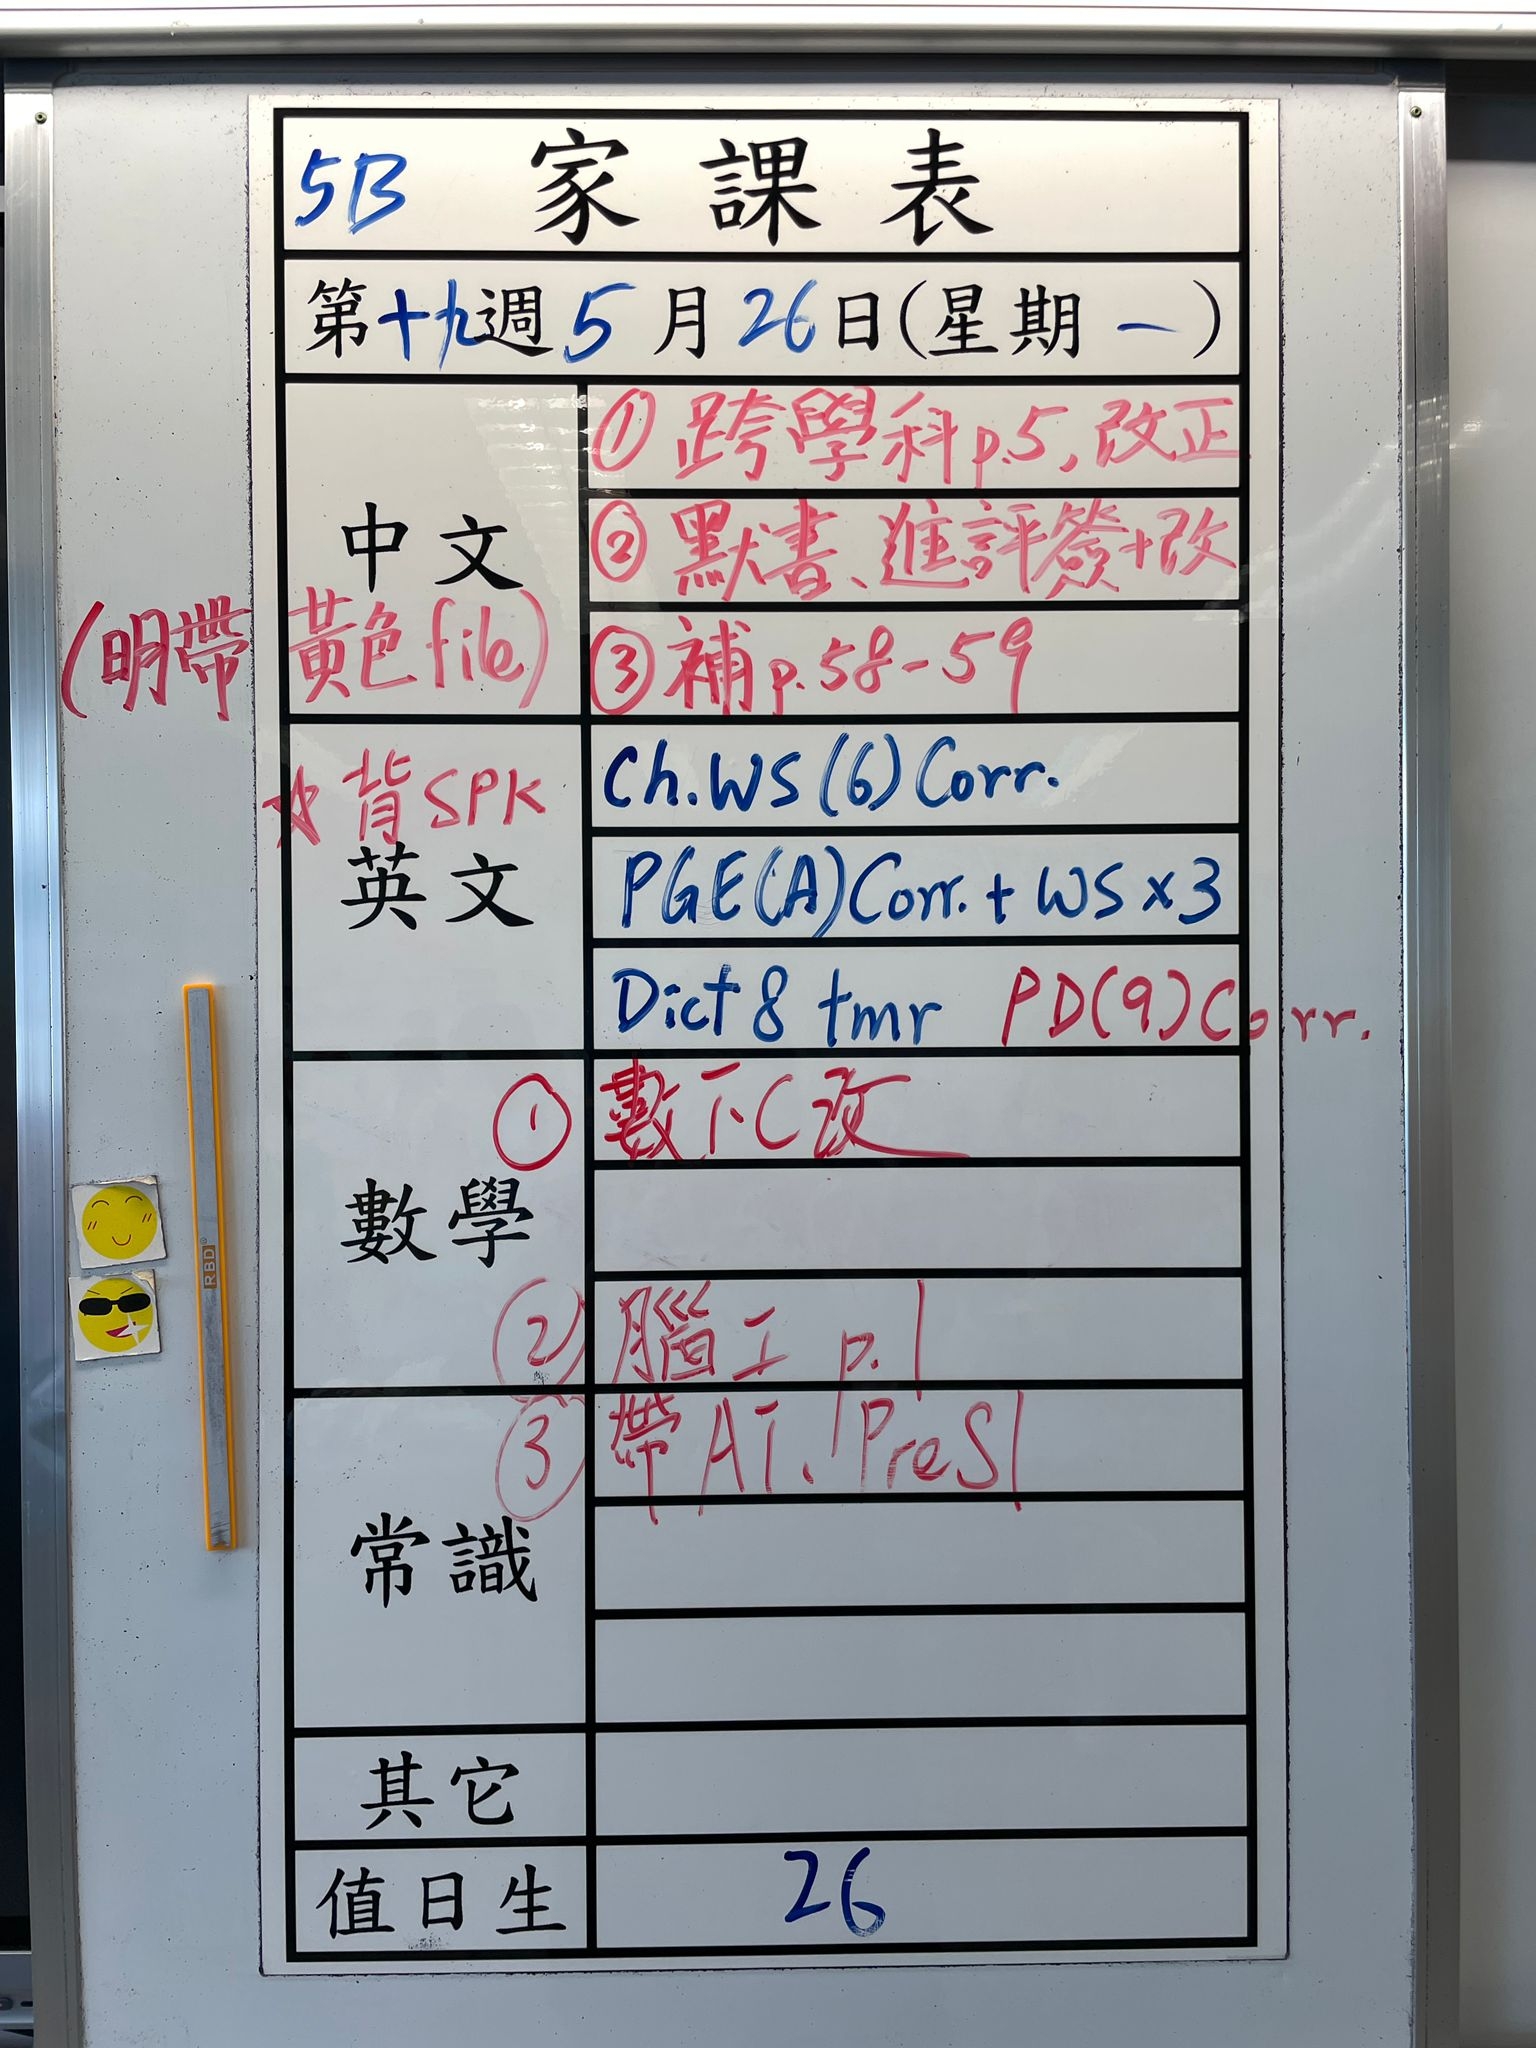 5B 家課表
第十九週 5月26日(星期一)
中文
① 跨學科p.5, 改正
② 默書、進評簽+改
(明帶黃色file)
③ 補p.58-59
☆背SPK
英文
Ch.WS(6)Corr.
PGE(A)Corr. + WS x 3
Dict 8 tmr PD(9)Corr.
數學
① 數下C改
② 腦工 p.1
③ 帶AI、PreS1
常識
其它
值日生 26
RBD